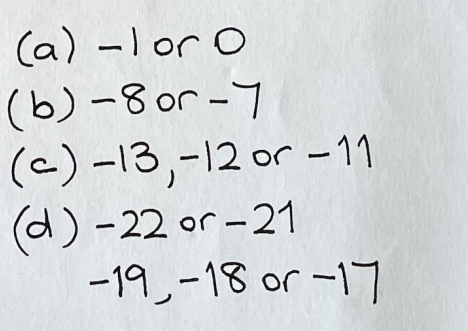 (a) -1 or 0
(b) -8 or -7
(c) -13, -12 or -11
(d) -22 or -21
-19, -18 or -17